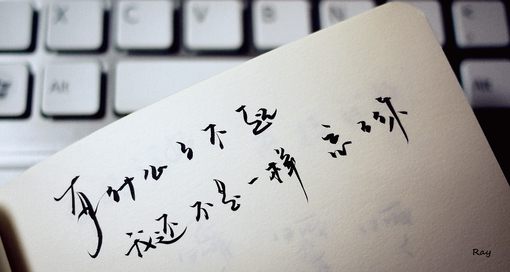 X C V B N
Alt
有什么了不起
我还不是一样 忘 你
Ray